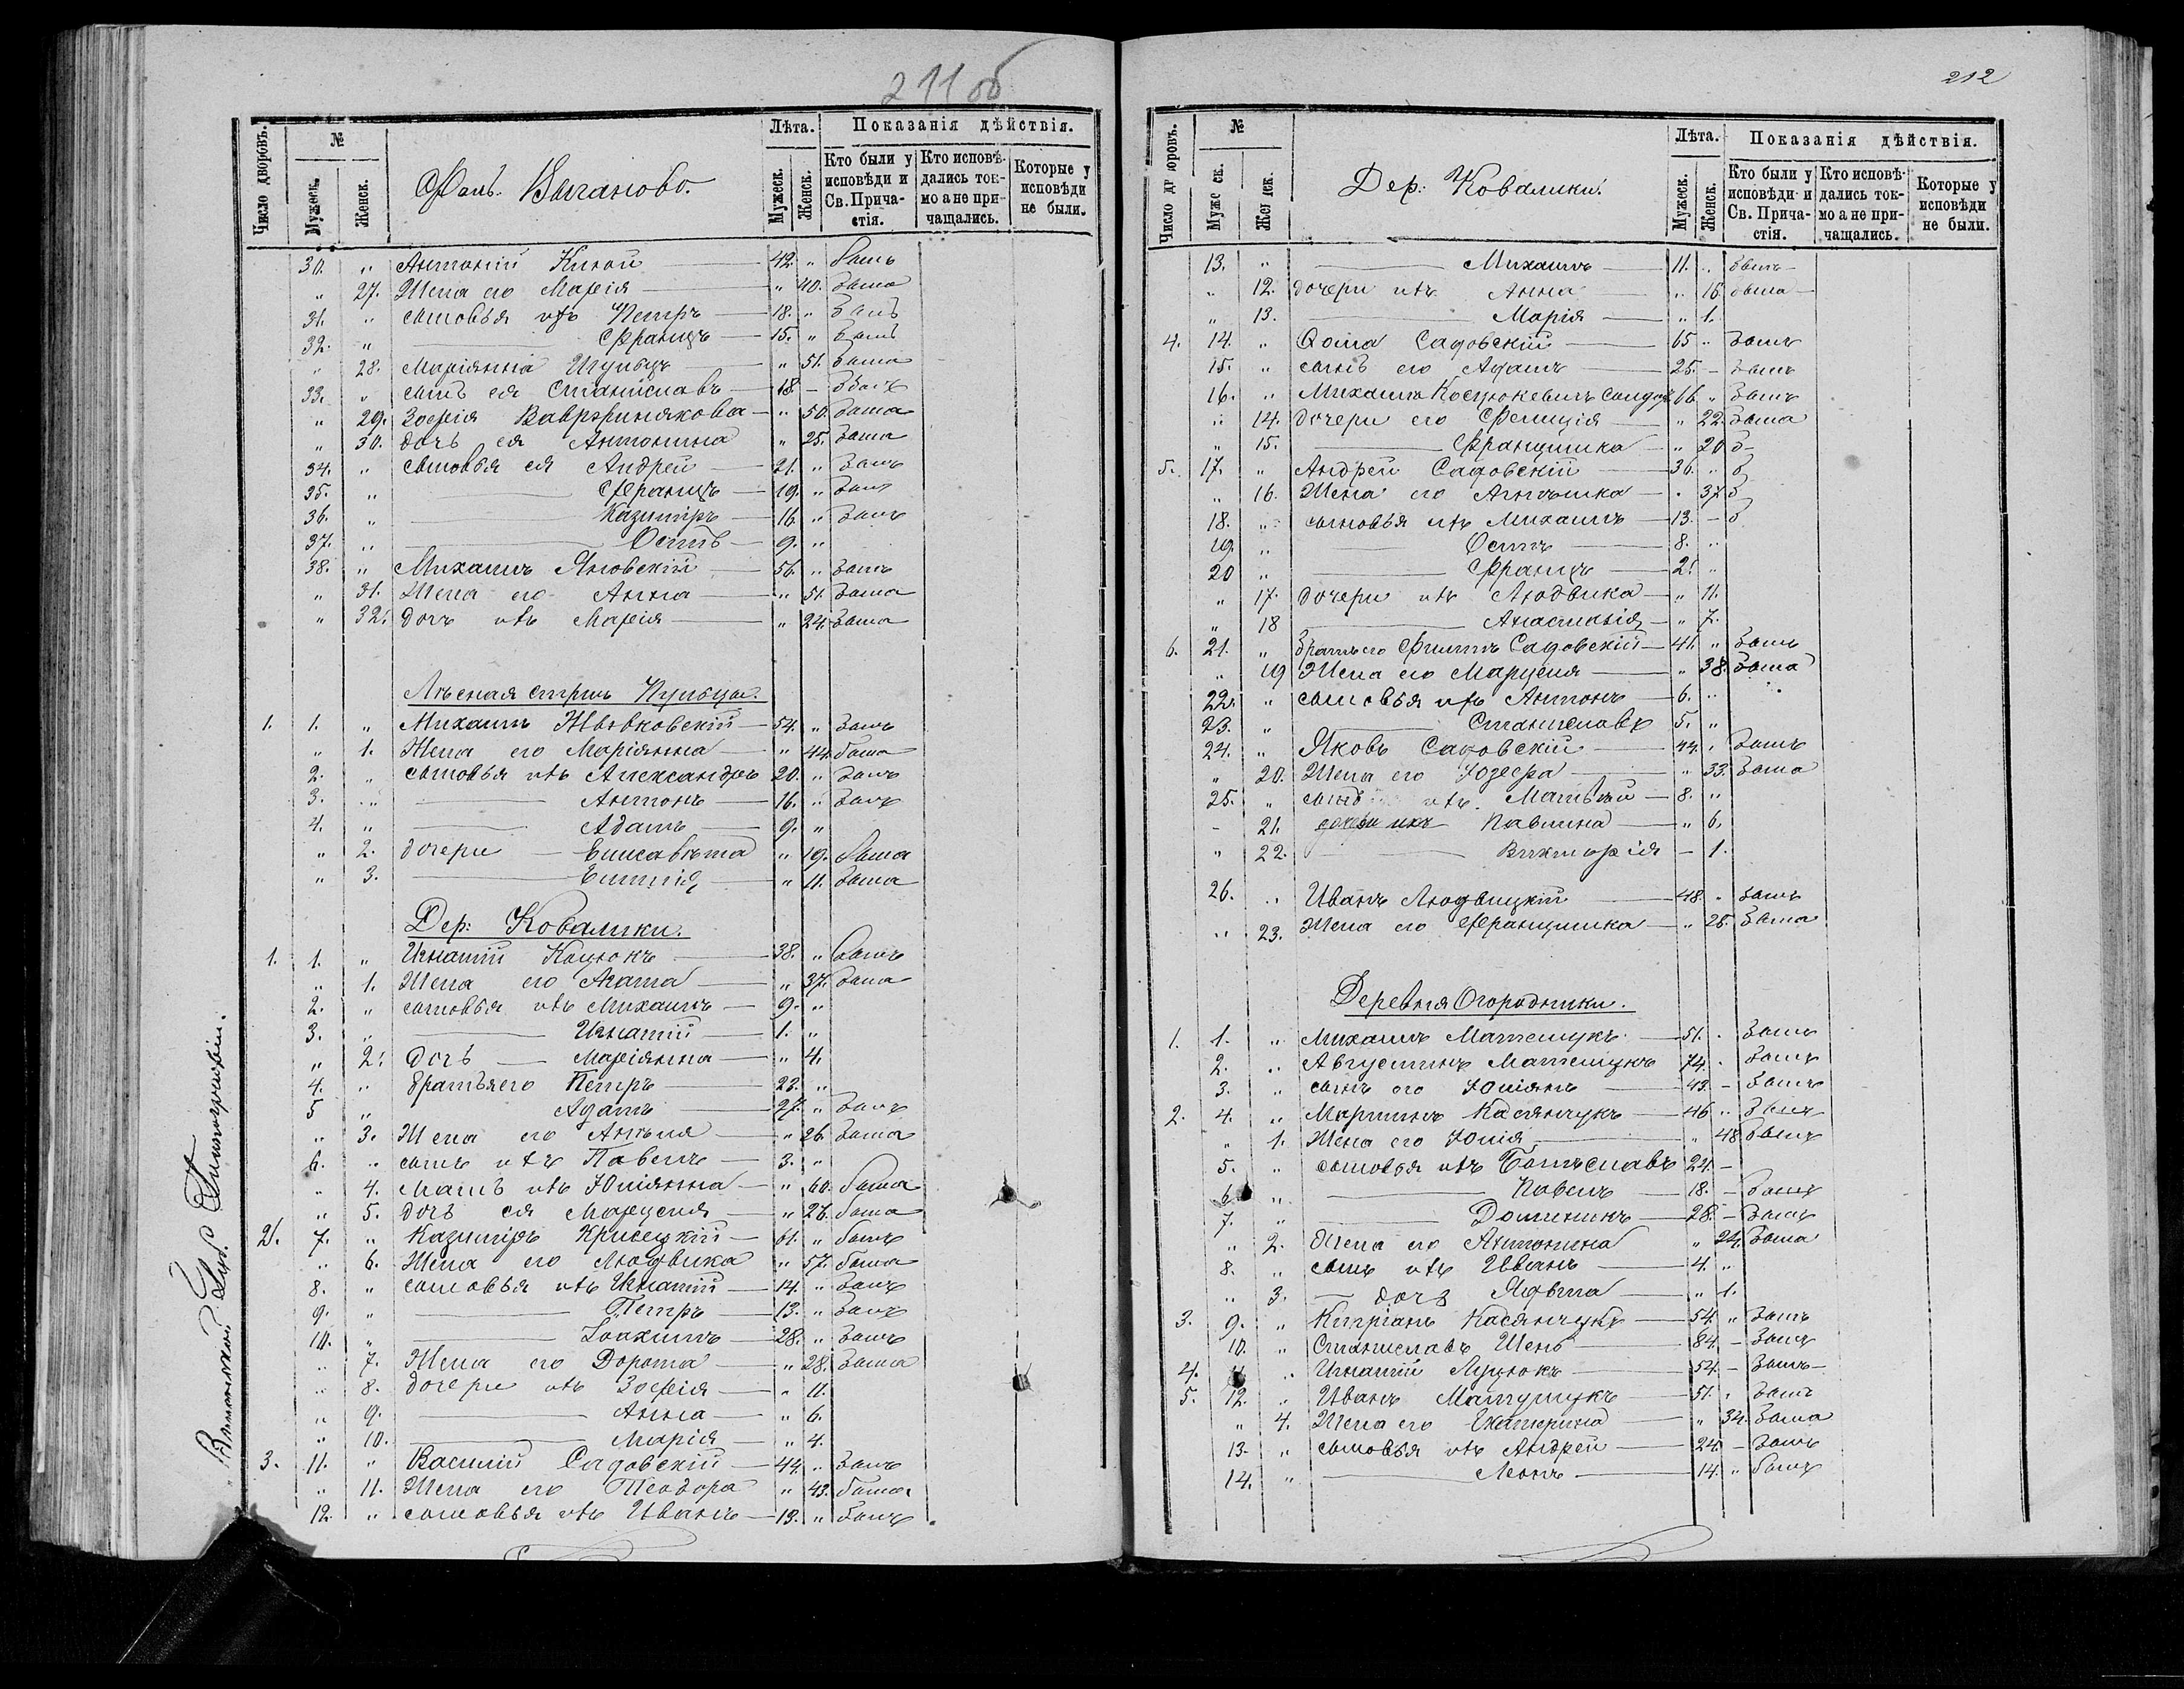 211 об
Число дворовъ. № Мужеск. Женск. Фоль. Лѣта. Мужеск. Женск. Показанія дѣйствія. Кто были у исповѣди и Св. Причастія. Кто исповѣдались токмо а не причащались. Которые у исповѣди не были.
30. „ Антоній 42. „ былъ
„ 27. Жена его Марія „ 40. была
31. „ сыновья ихъ Петръ 18. „ былъ
32. „ — Францъ 15. „ былъ
„ 28. Маріянна „ 51. была
33. „ сынъ ея Станиславъ 18 – былъ
„ 29. Зофія Ваврынякова „ 50. была
„ 30. дочь ея Антонина „ 25. была
34. „ сыновья ея Андрей 21. „ былъ
35. „ — Францъ 19. „ былъ
36. „ — Казиміръ 16. „ былъ
37. „ — Осипъ 9. „
38. „ Михаилъ Яновскій 56. „ былъ
„ 31. Жена его Анна „ 51. была
„ 32. дочь ихъ Марія „ 24. была
Лѣсная стража
1. 1. „ Михаилъ 54. „ былъ
„ 1. Жена его Маріянна „ 44. была
2. „ сыновья ихъ Александръ 20. „ былъ
3. „ — Антонъ 16. „ былъ
4. „ — Адамъ 9. „
„ 2. дочери — Елисавета „ 19. была
„ 3. — Емилія „ 11. была
Дер: Ковалики.
1. 1. „ Игнатій Коцюкъ 38. „ былъ
„ 1. Жена его Агата „ 37. была
2. „ сыновья ихъ Михаилъ 9. „
3. „ — Игнатій 1. „
„ 2. дочь — Маріянна „ 4.
4. „ братья его Петръ 22. „
5 „ Адамъ 27. „ былъ
„ 3. Жена его Анеля „ 26. была
6. „ сынъ ихъ Павелъ 3. „
„ 4. мать ихъ Юліянна „ 60. была
„ 5. дочь ея Марцеля „ 26. была
2. 7. „ Казиміръ Крисецкій 61. „ былъ
„ 6. Жена его Людвика „ 57. была
8. „ сыновья ихъ Игнатій 14. „ былъ
9. „ — Петръ 13. „ былъ
10. „ — Іоахимъ 28. „ былъ
„ 7. Жена его Дорота „ 28. была
„ 8. дочери ихъ Зофія „ 11.
„ 9. — Анна „ 6.
„ 10. — Марія „ 4.
3. 11. „ Василій Садовскій 44. „ былъ
„ 11. Жена его Теодора „ 43. была
12. „ сыновья ихъ Иванъ 13. „ былъ
212
Число дворовъ. № Мужеск. Женск. Дер: Ковалики. Лѣта. Мужеск. Женск. Показанія дѣйствія. Кто были у исповѣди и Св. Причастія. Кто исповѣдались токмо а не причащались. Которые у исповѣди не были.
13. „ — Михаилъ 11. „ былъ
„ 12. дочери ихъ Анна „ 15. была
„ 13. — Марія „ 1.
4. 14. „ Ѳома Садовскій 65 „ былъ
15. „ сынъ его Адамъ 25. – былъ
16. „ Михаилъ Косцюкевичъ 66 „ былъ
„ 14. дочери его Фелиція „ 22. была
„ 15. — Францишка „ 20 б
5. 17. „ Андрей Садовскій 36. „ б
„ 16. Жена его Агнѣшка „ 37 б
18. „ сыновья ихъ Михаилъ 13. – б
19. „ — Осипъ 8. „
20 „ — Францъ 2. „
„ 17. дочери ихъ Людвика „ 11.
„ 18 — Анастазія „ 7.
6. 21. „ братъ его Филипъ Садовскій 41. „ былъ
„ 19 Жена его Марцеля „ 38. была
22. „ сыновья ихъ Антонъ 6. „
23. „ — Станиславъ 5. „
24. „ Яковъ Садовскій 44. „ былъ
„ 20. Жена его Юзефа „ 33. была
25. „ сынъ ихъ Матвѣй 8. „
– 21. дочери ихъ Павлина „ 6.
„ 22. — Викторія – 1.
26. „ Иванъ Людвицкій 48 „ былъ
„ 23. Жена его Францишка „ 25. была
Деревня Огородники.
1. 1. „ Михаилъ Матвейчукъ 51. „ былъ
2. „ Августинъ 74. „ былъ
3. „ сынъ его Юліянъ 43. – былъ
2. 4. „ Мартинъ Касянчукъ 46 „ былъ
„ 1. Жена его Юлія „ 48 былъ
5. „ сыновья ихъ Болеславъ 24. –
6 „ — Павелъ 18. – былъ
7. „ — Доминикъ 28. – былъ
„ 2. Жена его Антонина „ 24. была
8. „ сынъ ихъ Иванъ 4. „
„ 3. — дочь Ядвига „ 1.
3. 9. „ Кипріанъ Касянчукъ 54. „ былъ
10. „ Станиславъ 84. – былъ
4. 11 „ Игнатій Луцюкъ 54. – былъ
5. 12. „ Иванъ 51. „ былъ
„ 4. Жена его Екатерина „ 34. была
13. „ сыновья ихъ Андрей 24. – былъ
14. „ — Леонъ 14. „ былъ